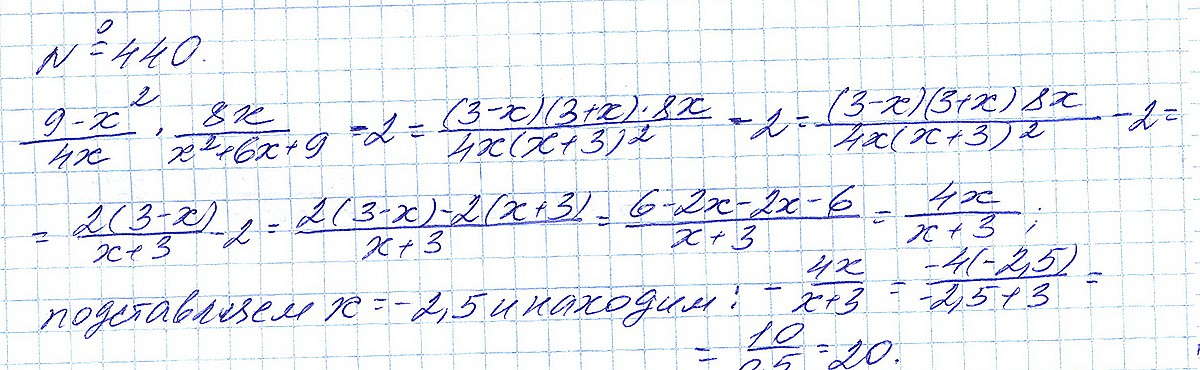 № 440.
(9-x²)/(4x) · (8x)/(x²+6x+9) - 2 = ((3-x)(3+x)·8x)/(4x(x+3)²) - 2 = ((3-x)(3+x)8x)/(4x(x+3)²) - 2 =
= (2(3-x))/(x+3) - 2 = (2(3-x)-2(x+3))/(x+3) = (6-2x-2x-6)/(x+3) = (4x)/(x+3) ;
подставляем x = -2,5 и находим : - (4x)/(x+3) = (-4(-2,5))/(-2,5+3) =
= 10/0,5 = 20.